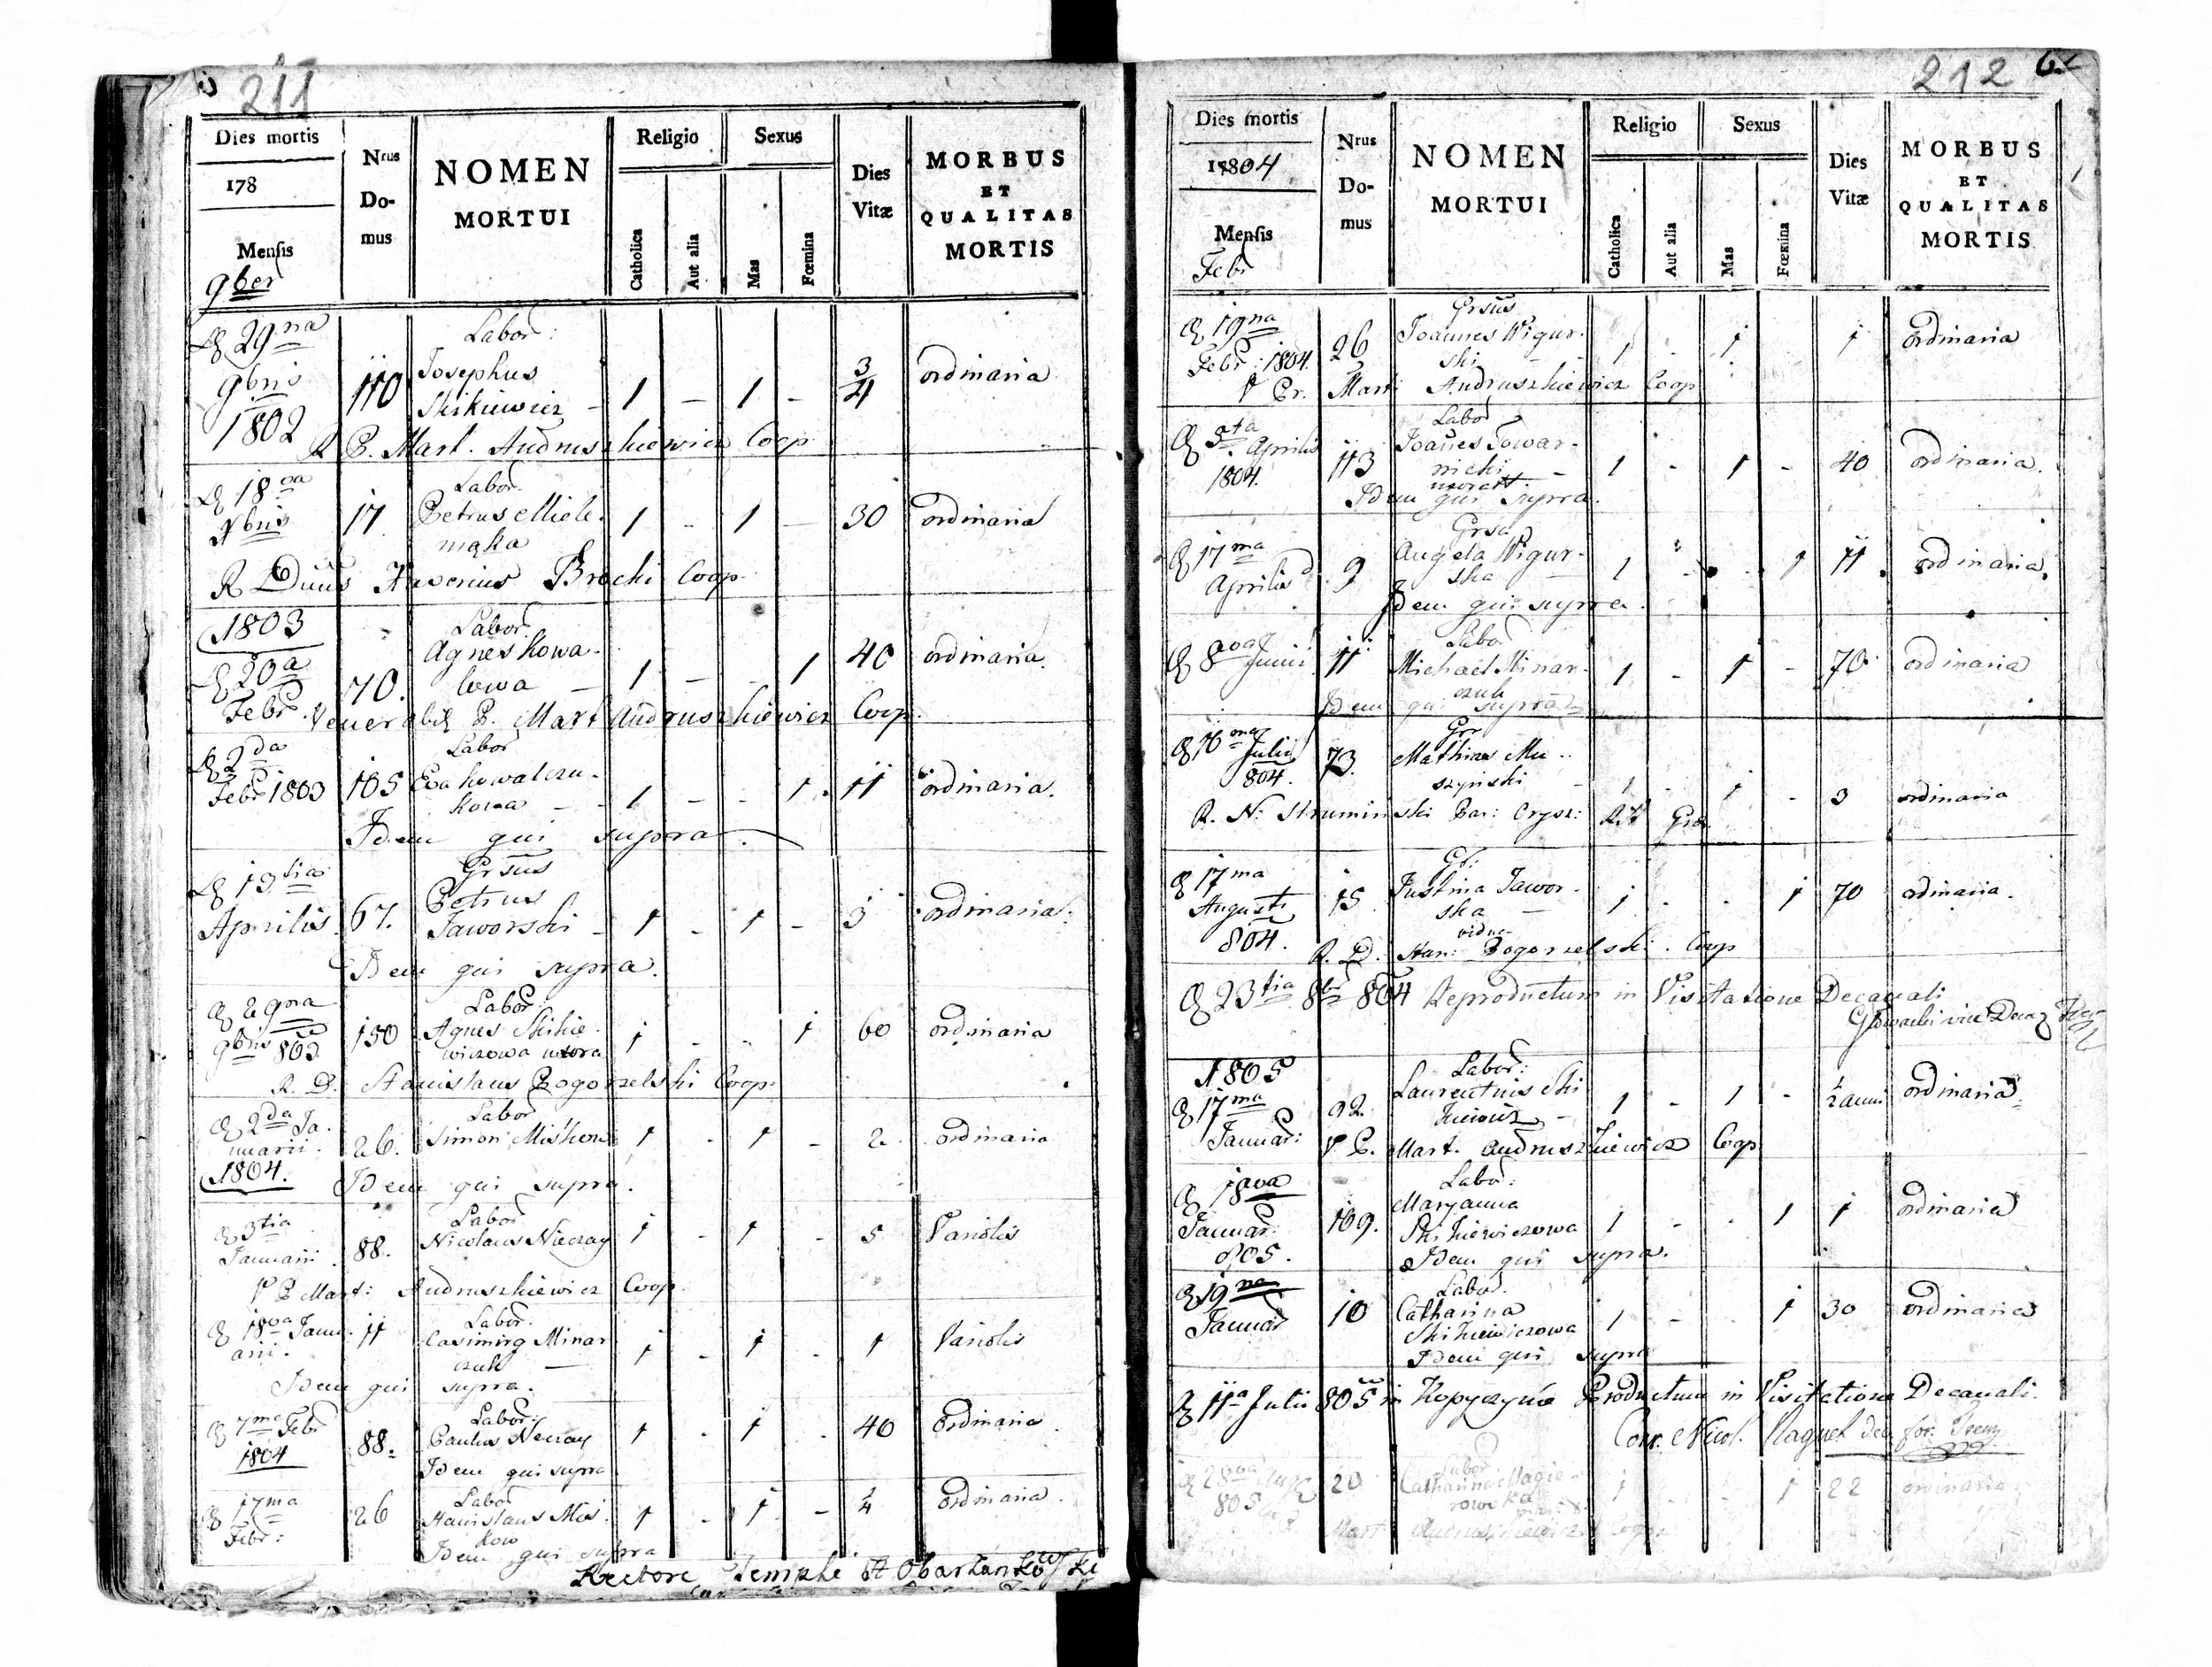 211
Dies mortis
178
Mensis
9ber
Nrus
Do-
mus
NOMEN
MORTUI
Religio
Catholica
Aut alia
Sexus
Mas
Fœmina
Dies
Vitæ
MORBUS
ET
QUALITAS
MORTIS
29na
9bris
1802
110
Labor:
Josephus
Skikiewicz
1 - 1 -
3/4
ordinaria
R P. Mart. Andruszkiewicz Coop
18va
Xbris
17
Labor.
Petrus Miele-
mąka
1 - 1 - 30 ordinaria
R Dnus Xaverius Brocki Coop
1803
20a
Febr.
70.
Labor.
Agnes Kowa-
lowa
1 - - 1 40 ordinaria.
Venerabil P. Mart Andruszkiewicz Coop.
2da
Febr 1803
105
Labor
Eva Kowalczu-
kowa
1 - - 1 11 ordinaria.
Idem qui supra.
13tia
Aprilis
67.
Grsus
Petrus
Jaworski
1 - 1 - 3 ordinaria.
Idem qui supra.
29na
9bris 803
150
Labor.
Agnes Skikie-
wiczowa uxora
1 - - 1 60 ordinaria
R. D. Stanislaus Pogorzelski Coop.
2da Ja-
nuarii.
1804.
26.
Labor
Simon Miskow
1 - 1 - 2 ordinaria
Idem qui supra.
3tia
Januarii.
88.
Labor.
Nicolaus Nieczay
1 - 1 - 5 Variolis
V P Mart: Andruszkiewicz Coop.
18va Janu-
arii.
11
Labor.
Casimirg Minar
czuk
1 - 1 - 1 Variolis
Idem qui supra.
7ma Febr
1804
88.
Labor.
Paulus Neczay
1 - 1 - 40 Ordinaria.
Idem qui supra
17ma
Febr:
26
Labor
Stanislaus Mis-
kow
1 - 1 - 1/4 ordinaria.
Idem qui supra
Rectore Templi
212
Dies mortis
1804
Mensis
Febr
Nrus
Do-
mus
NOMEN
MORTUI
Religio
Catholica
Aut alia
Sexus
Mas
Fœmina
Dies
Vitæ
MORBUS
ET
QUALITAS
MORTIS
19na
Febr: 1804.
26
Grsus
Joannes Wigur-
ski
1 - 1 1 ordinaria
V Pr. Mart Andruszkiewicz Coop
5ta Aprilis
1804.
113
Labor
Joanes Towar-
nicki
1 - 1 - 40 ordinaria.
Idem qui supra.
17ma
Aprilis
9
Grsa
Angela Wigur-
ska
1 - 1 11 ordinaria.
Idem qui supra.
8va Junii
11
Labor
Michael Minar-
czuk
1 - 1 - 70 ordinaria
Idem qui supra
16ma Julii
804.
73.
Grr
Mathias Mu-
szynski
1 - 1 - 3 ordinaria
R. N. Struminski Par: Orysz: Rit Grae.
17ma
Augusti
804.
15
Gr:
Justina Jawor-
ska
vidua
1 - - 1 70 ordinaria.
R. D. Stan: Pogorzelski. Coop
23tia 8br 804 Reproductum in Visitatione Decanali
Głowacki vice Decan
1805
17ma
Januar:
92.
Labor:
Laurentius Ski
kiewicz
1 - 1 - 1/2 anni ordinaria.
V P. Mart. Andruszkiewicz Coop
18va
Januar:
805.
109.
Labor:
Maryanna
Skikiewiczowa
1 - - 1 1 ordinaria
Idem qui supra.
19na
Januar
10
Labor.
Catharina
Skikiewiczowa
1 - - 1 30 ordinaria
Idem qui supra
11a Julii 805 in Kopyczyńce Productum in Visitatione Decanali.
20
Labor
Catharina
1 - - 1 22 ordinaria
Mart Andruszkiewicz Coop.